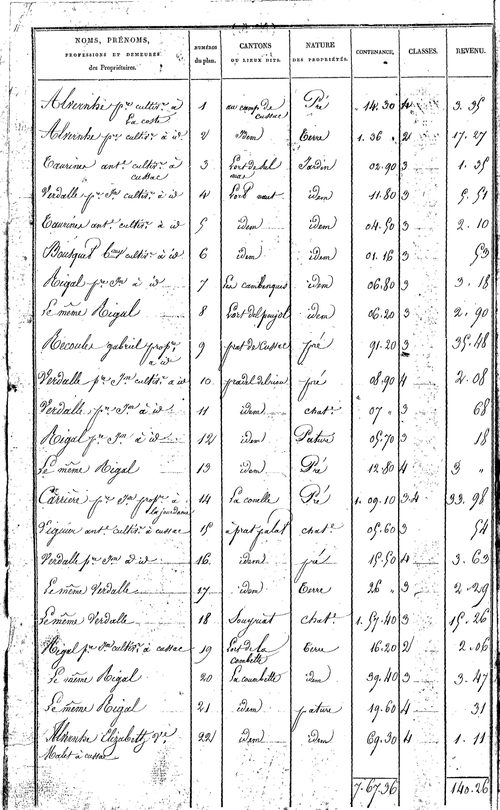 NOMS, PRÉNOMS, PROFESSIONS ET DEMEURES des Propriétaires. NUMÉROS du plan. CANTONS OU LIEUX DITS. NATURE DES PROPRIÉTÉS. CONTENANCE. CLASSES. REVENU.
Alvernhe p.re cultiv.r à La coste 1 au camp de cussac Pré 14.30 4 3.35
Alvernhe p.re cultiv.r à id 2 Idem Terre 1.36 " 2 17.27
Taurines ant. cultiv.r à cussac 3 L'ort de Jardin 02.90 3 1.35
Verdalle p.re J.n cultiv.r à id 4 L'ort haut idem 11.80 3 5.51
Taurines ant. cultiv.r à id 5 idem idem 04.50 3 2.10
Bousquet cultiv.r à id 6 idem idem 01.16 3 53
Rigal p.re J.n à id 7 Les cambengues idem 06.80 3 3.18
Le même Rigal 8 L'ort del pujol idem 06.20 3 2.90
Recoules gabriel prop.re à id 9 prat de Cussac pré 91.20 3 35.48
Verdalle p.re J.n cultiv.r à id 10 pradel del rieu pré 08.90 4 2.08
Verdalle p.re J.n à id 11 idem chat. 07 " 3 68
Rigal p.re J.n à id 12 idem Pature 05.70 3 18
Le même Rigal 13 idem Pré 12.80 4 3 "
Carrière p.re J.n prop.re à la jourdanie 14 La comelle Pré 1.09.10 3.4 33.98
Viguier ant. cultiv.r à cussac 15 à prat palat chat. 05.60 3 54
Verdalle p.re J.n à id 16 idem pré 15.50 4 3.63
Le même Verdalle 17 idem Terre 26 " 3 2.29
Le même Verdalle 18 Souyrat chat. 1.57.40 3 15.26
Rigal p.re J.n cultiv.r à cussac 19 L'ort de la combette Terre 16.20 2 2.06
Le même Rigal 20 La coumbette idem 39.40 3 3.47
Le même Rigal 21 idem pature 19.60 4 31
Alvernhe Elizabeth v.ve Malet à cussac 22 idem idem 69.30 4 1.11
7.67.36 140.26